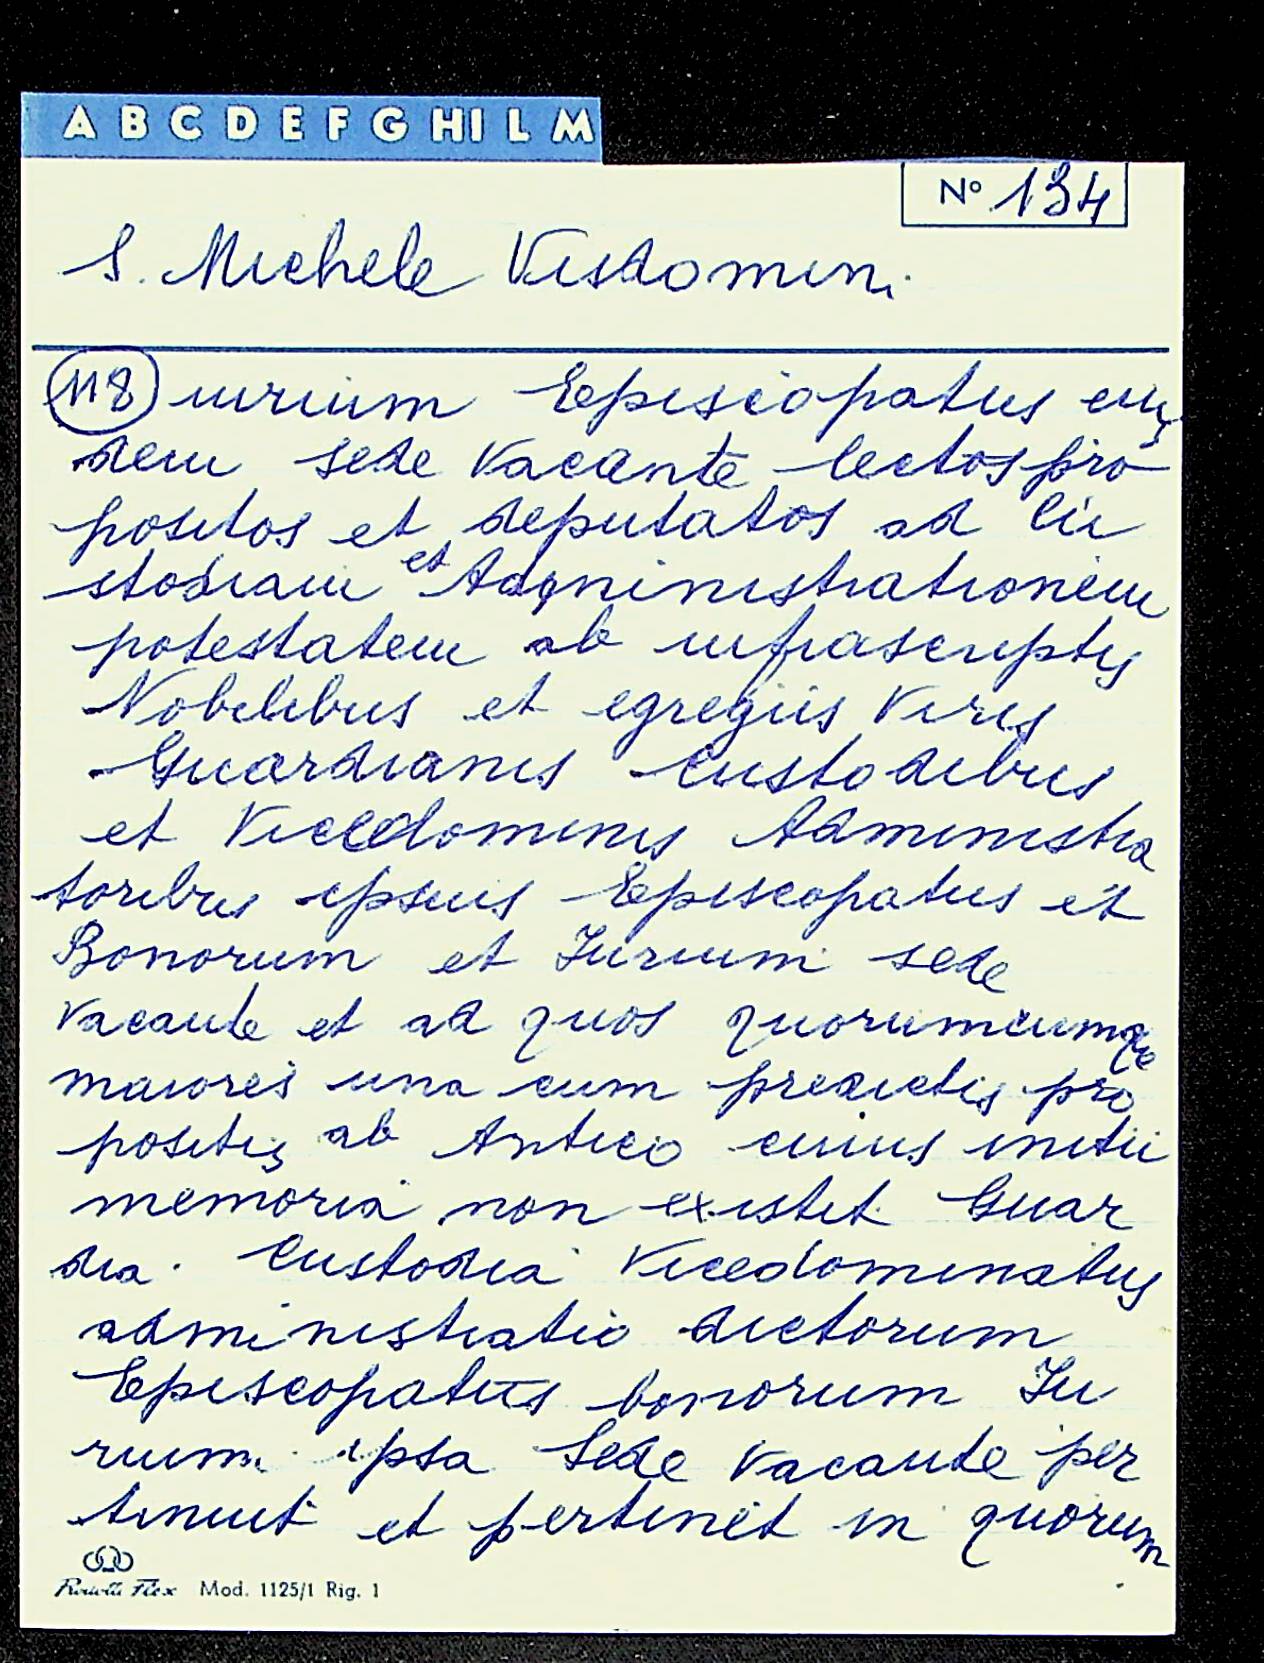 A B C D E F G HI L M
Nº 134
S. Michele Visdomini
118 iurium Episcopatus eius
dem sede Vacante lectos pro
positos et deputatos ad Cu
stodiam et Administrationem
potestatem ab infrascriptis
Nobilibus et egregiis Viris
Guardianis Custodibus
et Vicedominis Administra
toribus ipsius Episcopatus et
Bonorum et Iurium sede
Vacante et ad quos quorumcumque
maiores una cum predictis pro
positis ab Antico cuius initii
memoria non existit Guar
dia. Custodia Vicedominatus
administratio dictorum
Episcopatus bonorum Iu
rium ipsa Sede Vacante per
tinuit et pertinet in quorum
Mod. 1125/1 Rig. 1